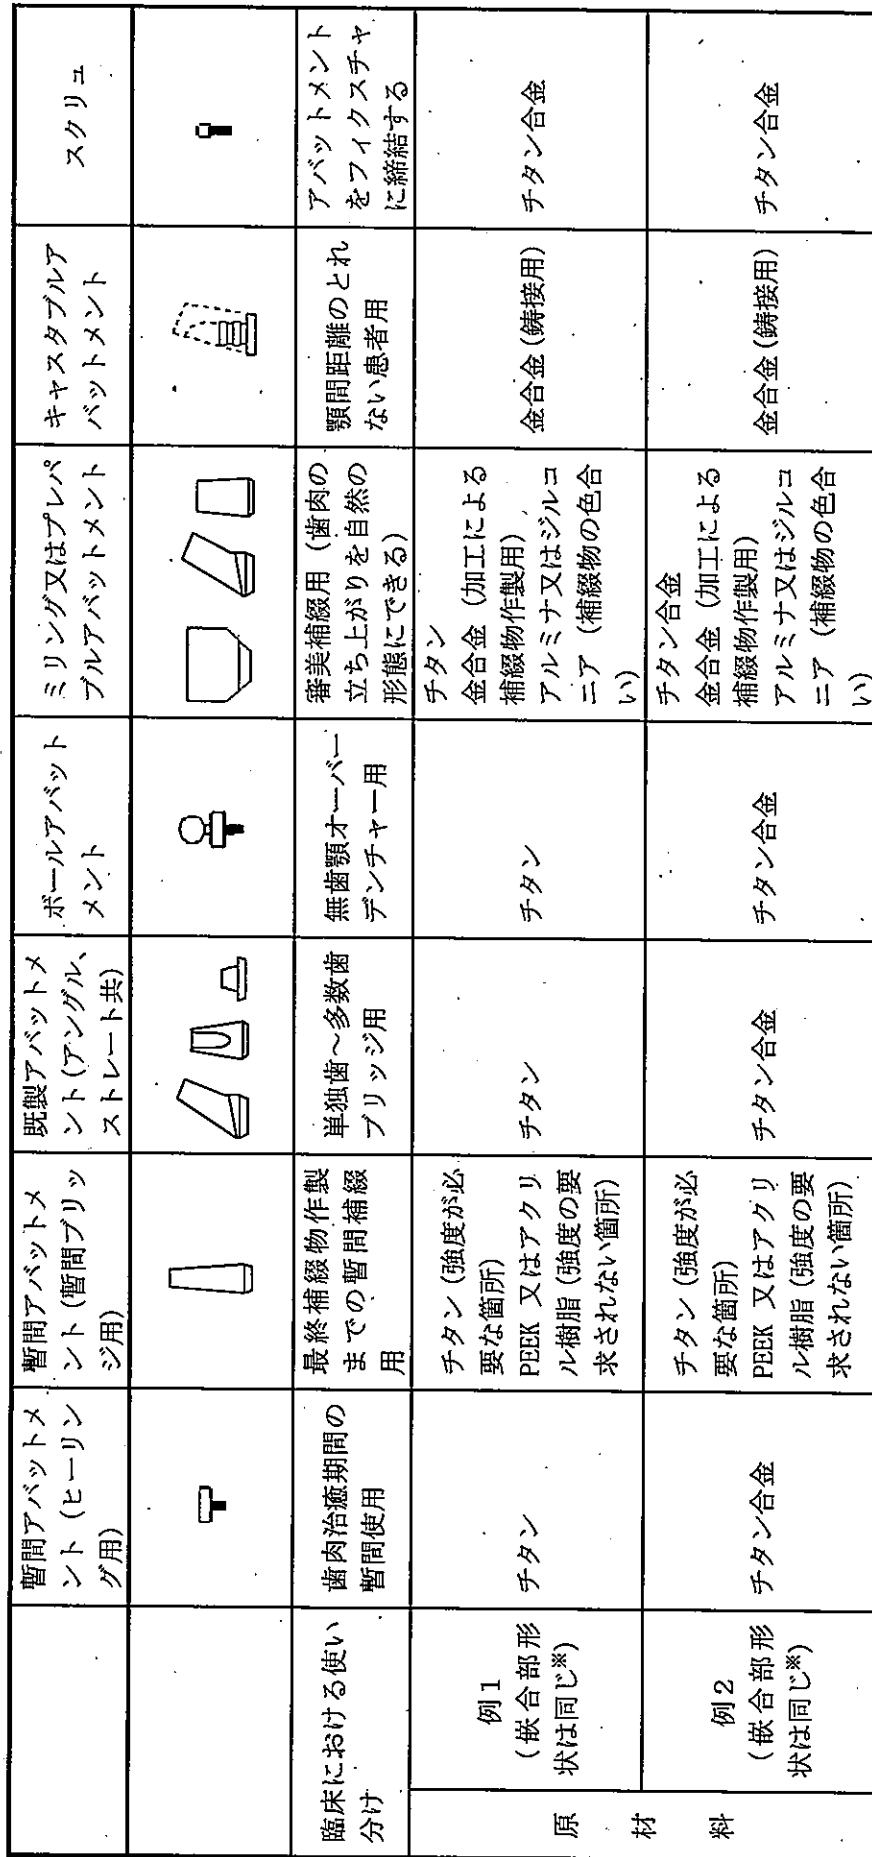 暫間アバットメ
ント(ヒーリン
グ用)
暫間アバットメ
ント(暫間ブリッ
ジ用)
既製アバットメ
ント(アングル、
ストレート共)
ボールアバット
メント
ミリング又はプレパ
ブルアバットメント
キャスタブルア
バットメント
スクリュ
臨床における使い
分け
歯肉治癒期間の
暫間使用
最終補綴物作製
までの暫間補綴
用
単独歯～多数歯
ブリッジ用
無歯顎オーバー
デンチャー用
審美補綴用(歯肉の
立ち上がりを自然の
形態にできる)
顎間距離のとれ
ない患者用
アバットメント
をフィクスチャ
に締結する
原材料
例1
(嵌合部形
状は同じ※)
チタン
チタン(強度が必
要な箇所)
PEEK 又はアクリ
ル樹脂(強度の要
求されない箇所)
チタン
チタン
チタン
金合金(加工による
補綴物作製用)
アルミナ又はジルコ
ニア(補綴物の色合
い)
金合金(鋳接用)
チタン合金
例2
(嵌合部形
状は同じ※)
チタン合金
チタン(強度が必
要な箇所)
PEEK 又はアクリ
ル樹脂(強度の要
求されない箇所)
チタン合金
チタン合金
チタン合金
金合金(加工による
補綴物作製用)
アルミナ又はジルコ
ニア(補綴物の色合
い)
金合金(鋳接用)
チタン合金